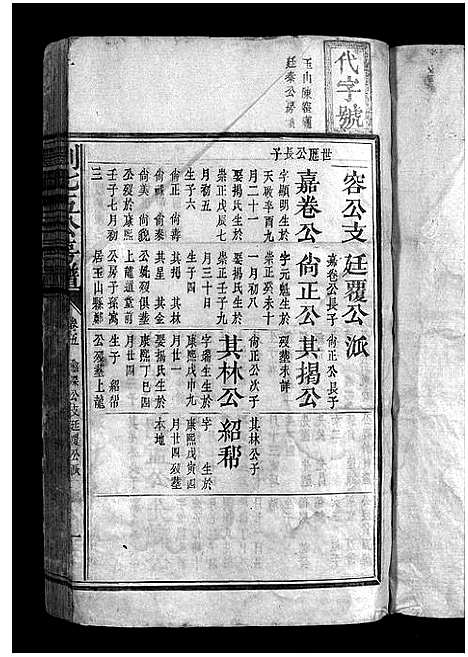 代字號
玉山陳
廷秦公房
容公支廷覆公派
世應公長子
嘉卷公
字顯明生於
天啟辛酉九
月二十一
娶揚氏生於
崇正戊辰七
月初五
生子六
尚正 尚貴
尚美 尚
公歿於康熙
壬子七月初
三
嘉卷公長子
尚正公
字元魁生於
崇正癸未十
一月初八
娶揚氏生於
崇正壬子九
月三十日
生子四
其揭 其林
其星 其金
公妣歿俱塟
上龍過堂前
公房子孫寓
居玉山縣鄭
尚正公長子
其揭公
歿塟未詳
尚正公次子
其林公
字瑞生生於
康熙戊申九
月廿一
娶揚氏生於
康熙丁巳四
月廿四
生子 紹帮
公歿塟上龍
其林公子
紹帮
字 生於
康熙戊寅四
月廿四歿塟
本地
卷五
公支廷覆公派
一